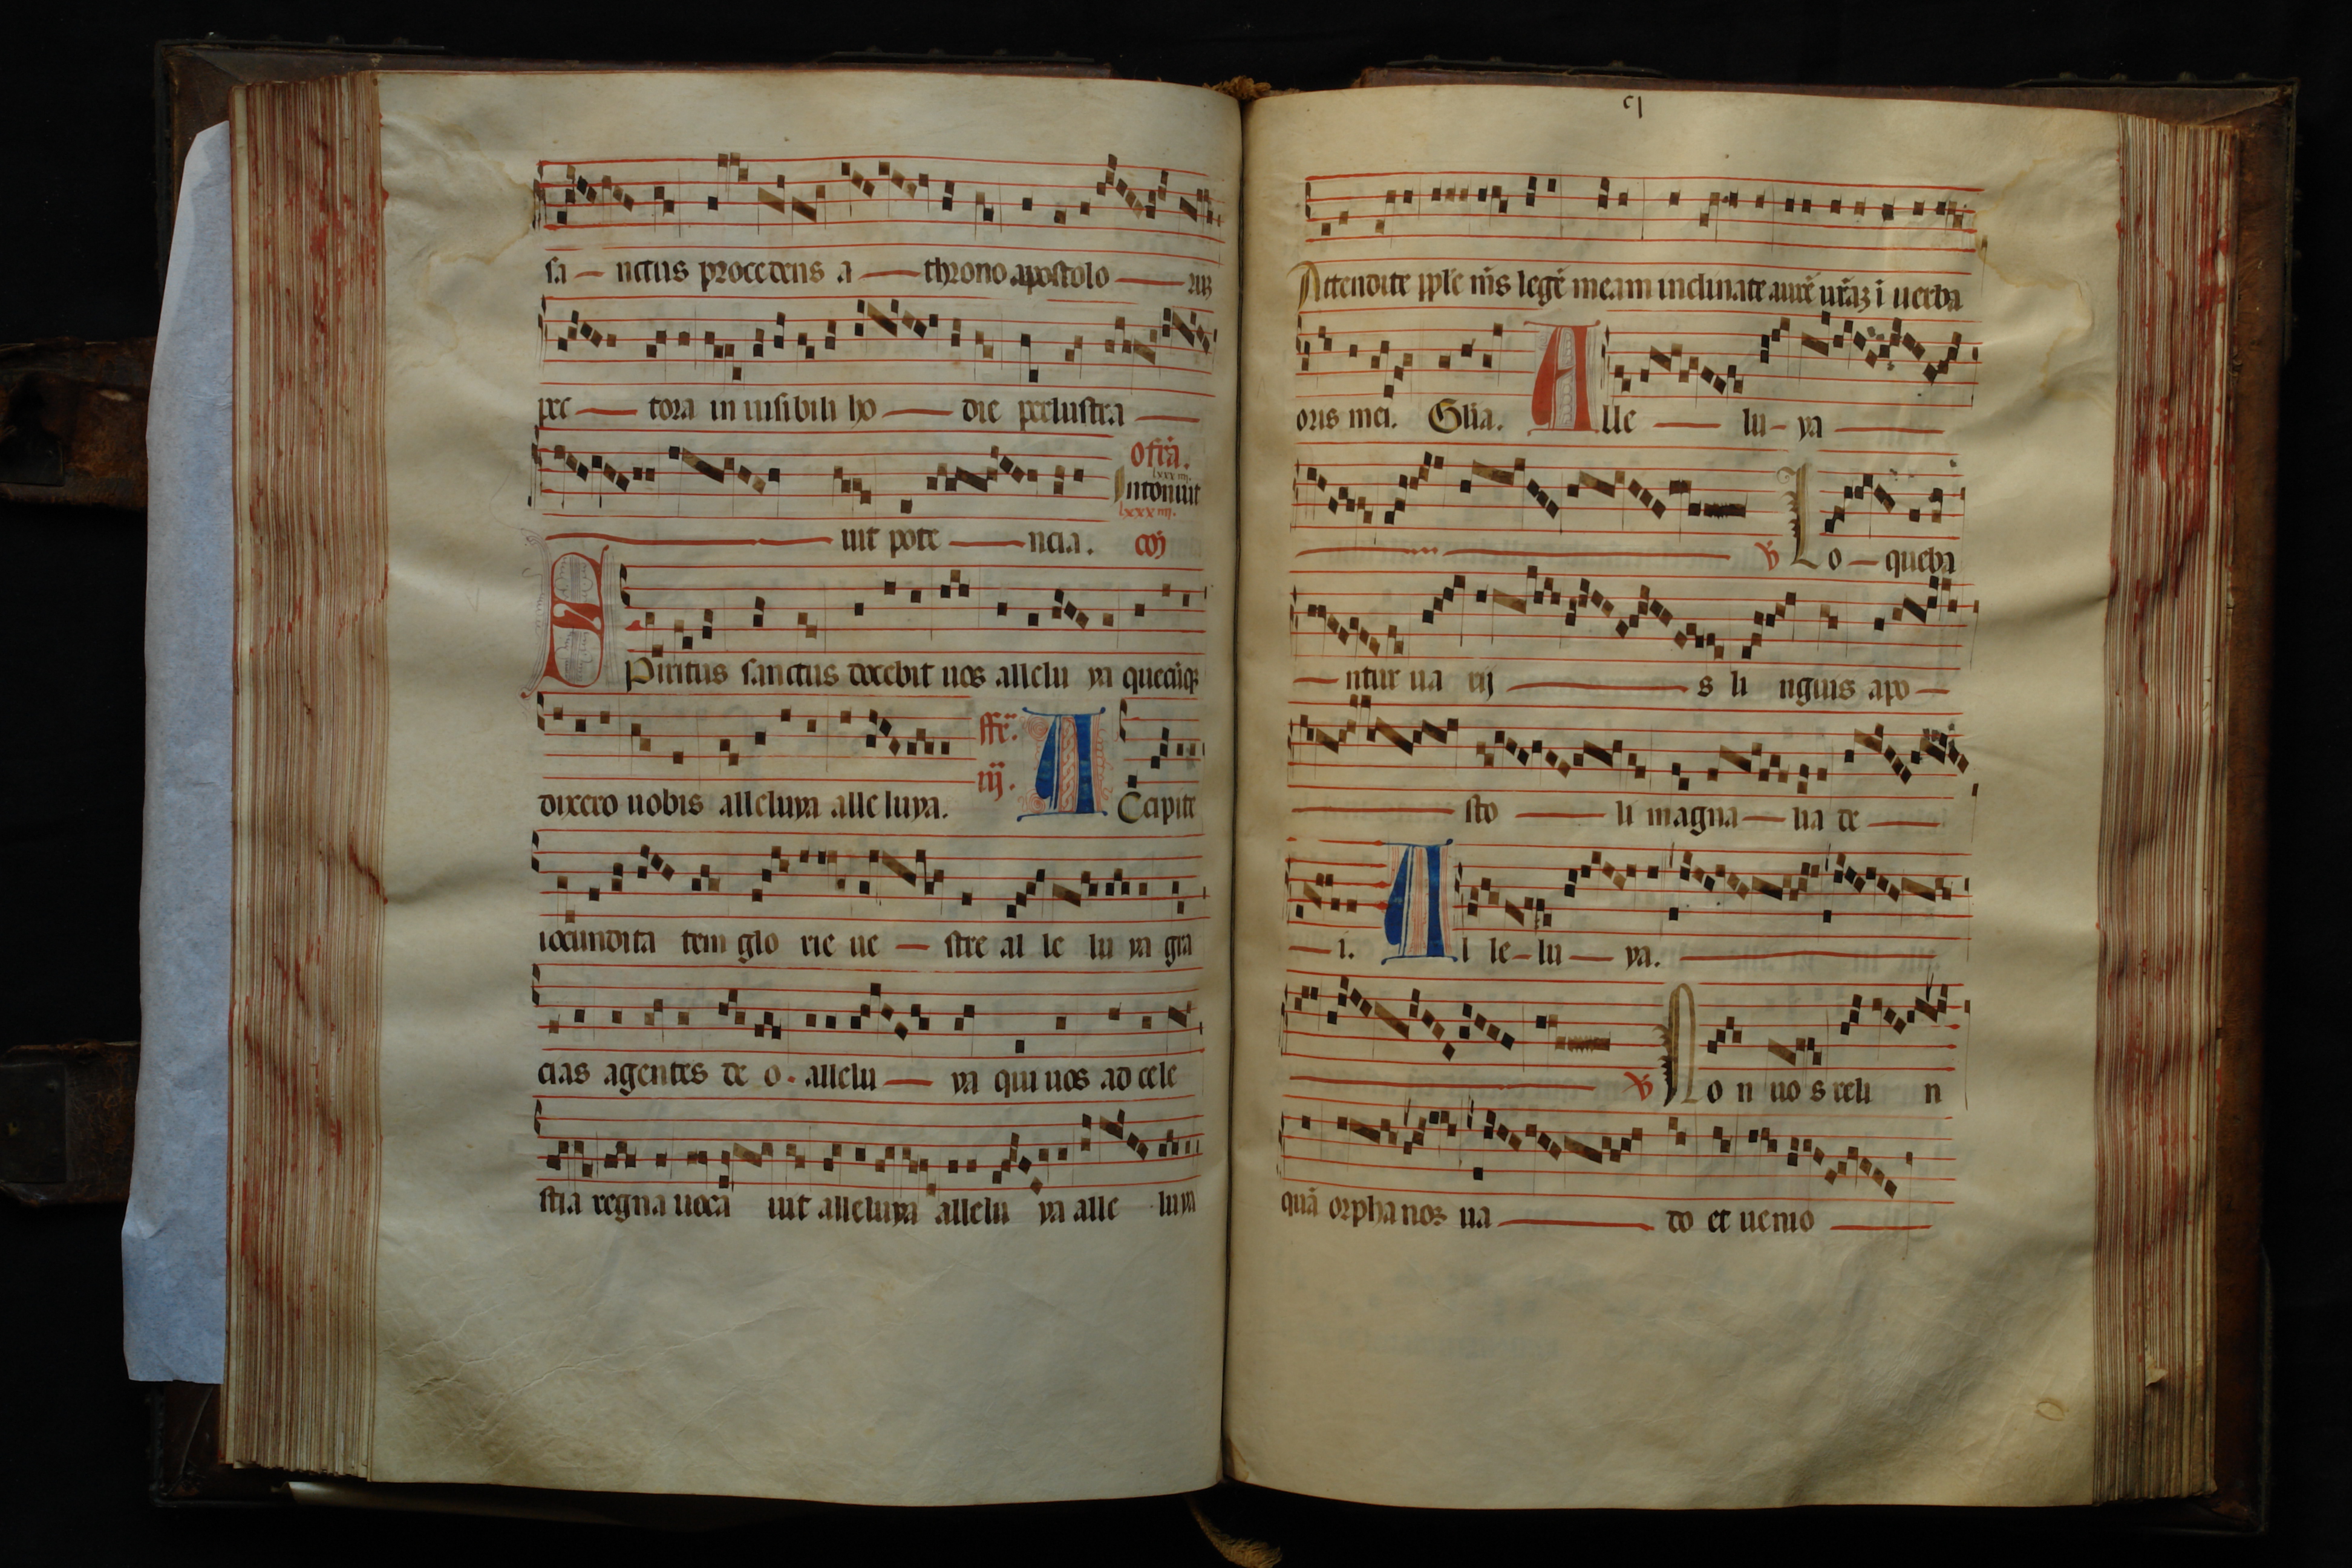 sa — nctus procedens a — throno apostolo — rum
pec — tora in uisibili ho — die perlustra —
ofrā.
lxxxiiij.
Intonuit
lxxxiiij.
— uit pote — ncia. cō
SPiritus sanctus docebit uos allelu ya quecūq3
dixero uobis alleluya alle luya. ffr̄. iij. ACcipite
iocundita tem glo rie ue — stre al le lu ya gra
cias agentes de o. allelu — ya qui uos ad cele
stia regna uoca uit alleluya allelu ya alle luya
cl
Attendite pple m̄s legē meam inclinate aurē urāʒ ī uerba
oris mei. Glīa. Alle — lu - ya —
— ꝟ Lo — queba
— ntur ua rij — s li nguis apo —
— sto — li magna — lia de —
— i. Al le - lu — ya. —
— ꝟ No n uo s reli n
quā orphanos ua — do et uenio —